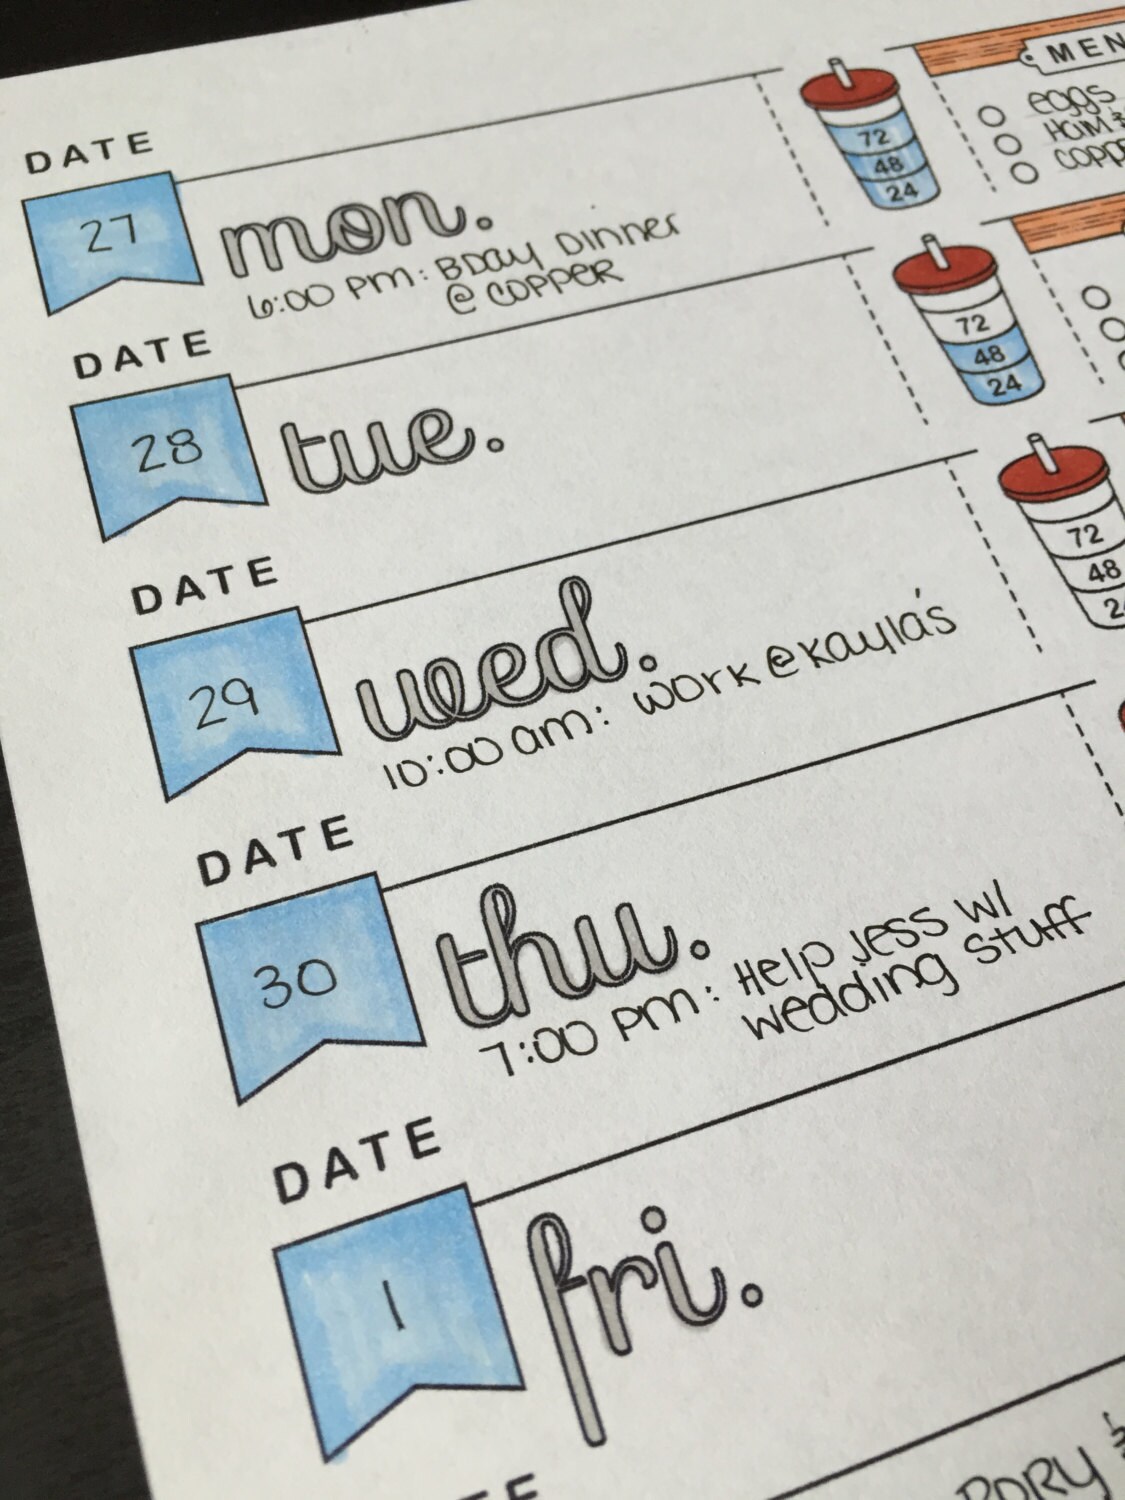 DATE
27
mon.
6:00 pm: BDay Dinner
@ copper
72
48
24
eggs
DATE
28
tue.
72
48
24
DATE
29
wed.
10:00 am: work @ Kayla's
72
48
DATE
30
thu.
7:00 pm: Help Jess w/
wedding stuff
DATE
1
fri.
RORY &